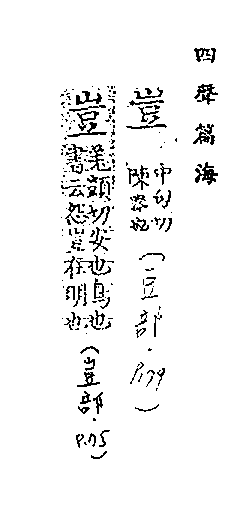 四聲篇海
豈
中句切
陳樂也
(豆部·P.179)
豈
羌顗切安也焉也
書云怨豈在明也
(豈部·P.75)